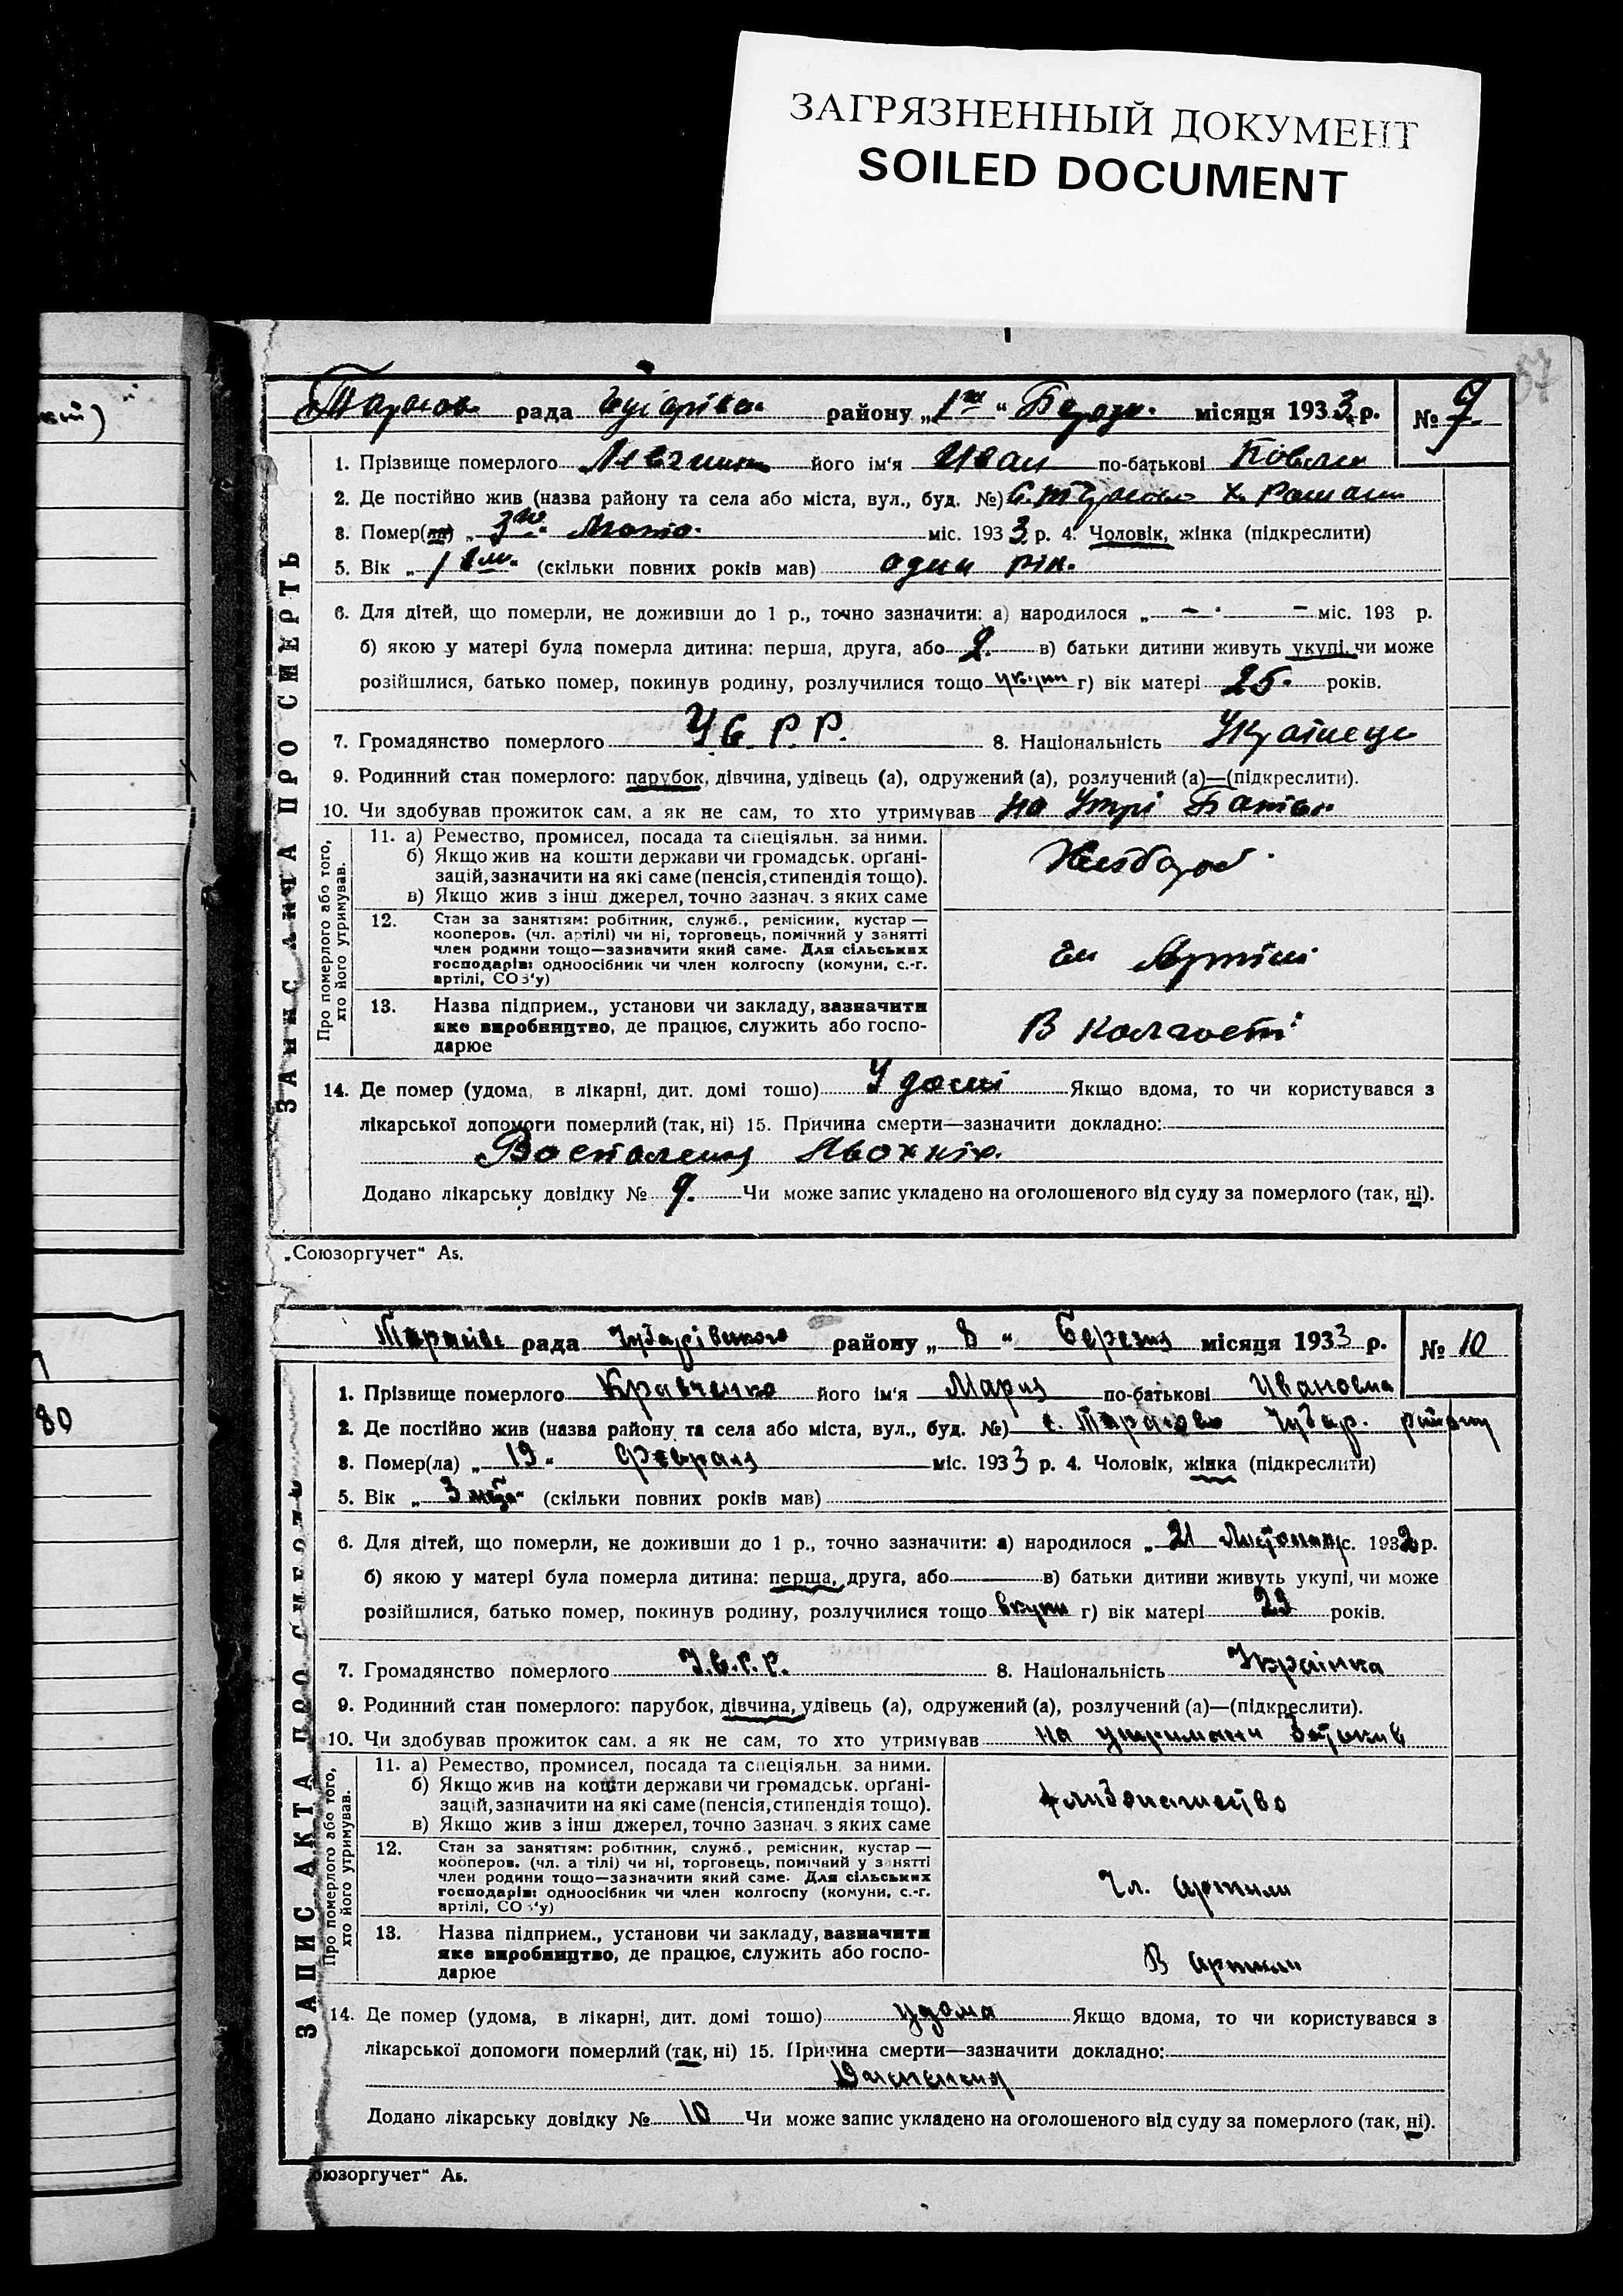 ЗАГРЯЗНЕННЫЙ ДОКУМЕНТ
SOILED DOCUMENT
рада району „1го“ місяця 1933 р. № 9
1. Прізвище померлого його ім'я Иван по-батькові
2. Де постійно жив (назва району та села або міста, вул., буд. №)
3. Помер(ла) „3го“ міс. 1933 р. 4. Чоловік, жінка (підкреслити)
5. Вік „1 (скільки повних років мав) один рік.
6. Для дітей, що померли, не доживши до 1 р., точно зазначити: а) народилося „ — · — міс. 193 р.
б) якою у матері була померла дитина: перша, друга, або 2. в) батьки дитини живуть укупі, чи може
розійшлися, батько помер, покинув родину, розлучилися тощо укупи г) вік матері 25. років.
7. Громадянство померлого У.С.Р.Р. 8. Національність Українець
9. Родинний стан померлого: парубок, дівчина, удівець (а), одружений (а), розлучений (а)—(підкреслити).
10. Чи здобував прожиток сам, а як не сам, то хто утримував на
ЗАПИС АКТА ПРО СМЕРТЬ
Про померлого або того, хто його утримував.
11. а) Ремество, промисел, посада та спеціяльн. за ними.
б) Якщо жив на кошти держави чи громадськ. орґані-
зацій, зазначити на які саме (пенсія, стипендія тощо).
в) Якщо жив з інш. джерел, точно зазнач. з яких саме
Хлібороб
12. Стан за заняттям: робітник, служб., ремісник, кустар —
кооперов. (чл. артілі) чи ні, торговець, помічний у занятті
член родини тощо—зазначити який саме. Для сільських
господарів: одноосібник чи член колгоспу (комуни, с.-г.
артілі, СОЗ'у)
чл Артілі
13. Назва підприєм., установи чи закладу, зазначити
яке виробництво, де працює, служить або госпо-
дарює
В колгоспі
14. Де помер (удома, в лікарні, дит. домі тощо) У домі Якщо вдома, то чи користувався з
лікарської допомоги померлий (так, ні) 15. Причина смерти—зазначити докладно:
Воспаления
Додано лікарську довідку № 9. Чи може запис укладено на оголошеного від суду за померлого (так, ні).
„Союзоргучет“ А5.
рада Чубарівського району „8“ Березня місяця 1933 р. № 10
1. Прізвище померлого Кравченко його ім'я Мария по-батькові Ивановна
2. Де постійно жив (назва району та села або міста, вул., буд. №) с. Тарасовка Чубар. району
3. Помер(ла) „19“ Февраля міс. 1933 р. 4. Чоловік, жінка (підкреслити)
5. Вік „3 (скільки повних років мав)
6. Для дітей, що померли, не доживши до 1 р., точно зазначити: а) народилося „21 Листопад міс. 1932 р.
б) якою у матері була померла дитина: перша, друга, або в) батьки дитини живуть укупі, чи може
розійшлися, батько помер, покинув родину, розлучилися тощо вкупи г) вік матері 23 років.
7. Громадянство померлого У.С.Р.Р. 8. Національність Українка
9. Родинний стан померлого: парубок, дівчина, удівець (а), одружений (а), розлучений (а)—(підкреслити).
10. Чи здобував прожиток сам, а як не сам, то хто утримував на утримани батьків
ЗАПИС АКТА ПРО СМЕРТЬ
Про померлого або того, хто його утримував.
11. а) Ремество, промисел, посада та спеціяльн. за ними.
б) Якщо жив на кошти держави чи громадськ. орґані-
зацій, зазначити на які саме (пенсія, стипендія тощо).
в) Якщо жив з інш джерел, точно зазнач. з яких саме
12. Стан за заняттям: робітник, служб., ремісник, кустар —
кооперов. (чл. артілі) чи ні, торговець, помічний у занятті
член родини тощо—зазначити який саме. Для сільських
господарів: одноосібник чи член колгоспу (комуни, с.-г.
артілі, СОЗ'у)
Чл. артили
13. Назва підприєм., установи чи закладу, зазначити
яке виробництво, де працює, служить або госпо-
дарює
В артили
14. Де помер (удома, в лікарні, дит. домі тощо) удома Якщо вдома, то чи користувався з
лікарської допомоги померлий (так, ні) 15. Причина смерти—зазначити докладно:
Додано лікарську довідку № 10 Чи може запис укладено на оголошеного від суду за померлого (так, ні).
оюзоргучет“ А5.
80